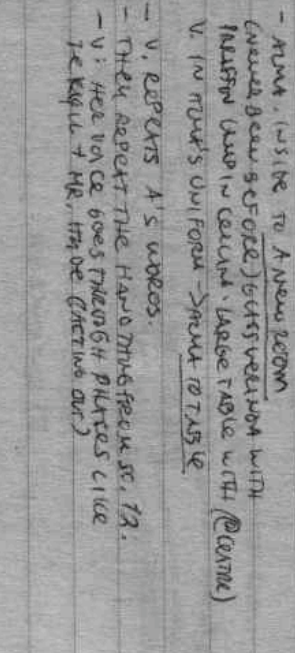 - ALMA. INSIDE TO A NEW ROOM
(NEVER BEEN BEFORE) VERUNDA WITH
LAMP IN CEILING. LARGE TABLE WITH (@CENTRE)
V. IN ALMA'S UNIFORM -> ALMA TO TABLE
- V. REPEATS A'S WORDS.
- THEY REPEAT THE HAND THING FROM SC. 72.
- V: HER VOICE GOES THROUGH PHASES LIKE
JEKYLL + MR. HYDE (ACTING OUT.)